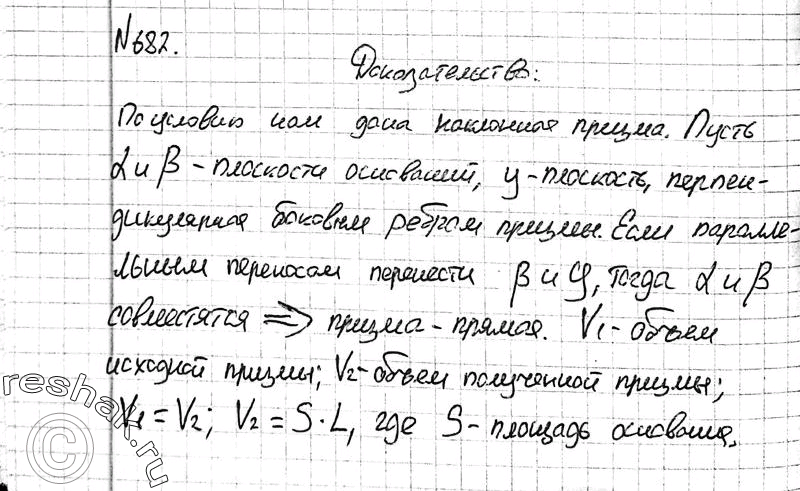 №682.
Доказательство:
По условию нам дана наклонная призма. Пусть
α и β - плоскости оснований, γ - плоскость, перпен-
дикулярная боковым ребрам призмы. Если паралле-
льным переносом перенести β и φ, тогда α и β
совместятся ⇒ призма - прямая. V₁ - объем
исходной призмы; V₂ - объем полученной призмы;
V₁ = V₂; V₂ = S·L, где S - площадь основания,
reshak.ru
©